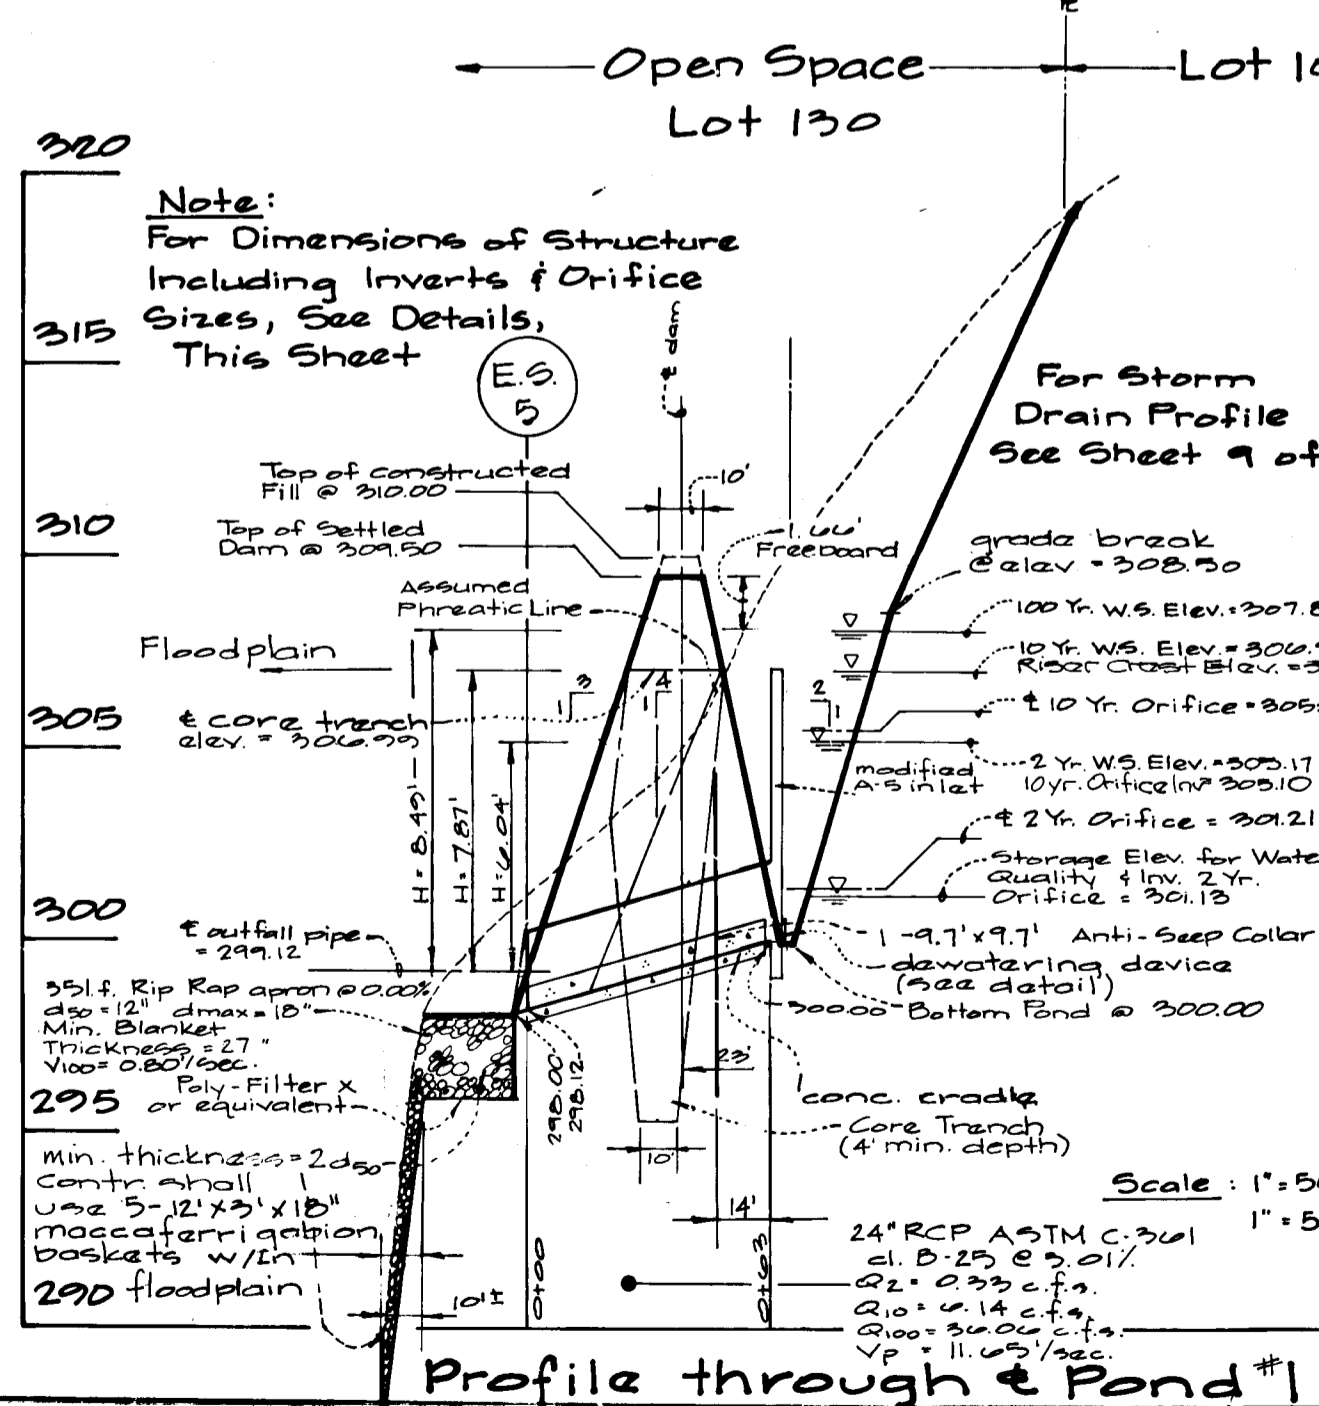 Open Space
Lot 130
320
Note:
For Dimensions of Structure
Including Inverts & Orifice
Sizes, See Details,
This Sheet
315
E.S.
5
℄ dam
For Storm
Drain Profile
See Sheet 9 of
Top of constructed
Fill @ 310.00
10'
310
Top of Settled
Dam @ 309.50
1.66'
Freeboard
grade break
@ elev = 308.50
Assumed
Phreatic Line
100 Yr. W.S. Elev. = 307.8
Floodplain
10 Yr. W.S. Elev. = 306.9
Riser Crest Elev. =
305
℄ core trench
elev. = 306.99
1
3
1
4
2
1
℄ 10 Yr. Orifice = 305
2 Yr. W.S. Elev. = 305.17
10 yr. Orifice Inv = 305.10
modified
A-5 inlet
H = 8.49'
H = 7.87'
H = 6.04'
℄ 2 Yr. Orifice = 301.21
Storage Elev. for Wate
Quality & Inv. 2 Yr.
Orifice = 301.13
300
℄ outfall pipe
= 299.12
1 - 9.7' x 9.7' Anti-Seep Collar
dewatering device
(see detail)
300.00
Bottom Pond @ 300.00
35 l.f. Rip Rap apron @ 0.00%
d50 = 12" dmax = 18"
Min. Blanket
Thickness = 27"
V100 = 0.80'/sec.
Poly-Filter X
or equivalent
295
298.00
298.12
23'
conc. cradle
Core Trench
(4' min. depth)
min. thickness = 2d50
Contr. shall
use 5-12' x 3' x 18"
maccaferri gabion
baskets w/in
floodplain
290
10'
14'
10'±
0+00
0+63
Scale : 1" = 5
1" = 5
24" RCP ASTM C-361
cl. B-25 @ 3.01%
Q2 = 0.33 c.f.s.
Q10 = 6.14 c.f.s.
Q100 = 36.06 c.f.s.
Vp = 11.65'/sec.
Profile through ℄ Pond #1